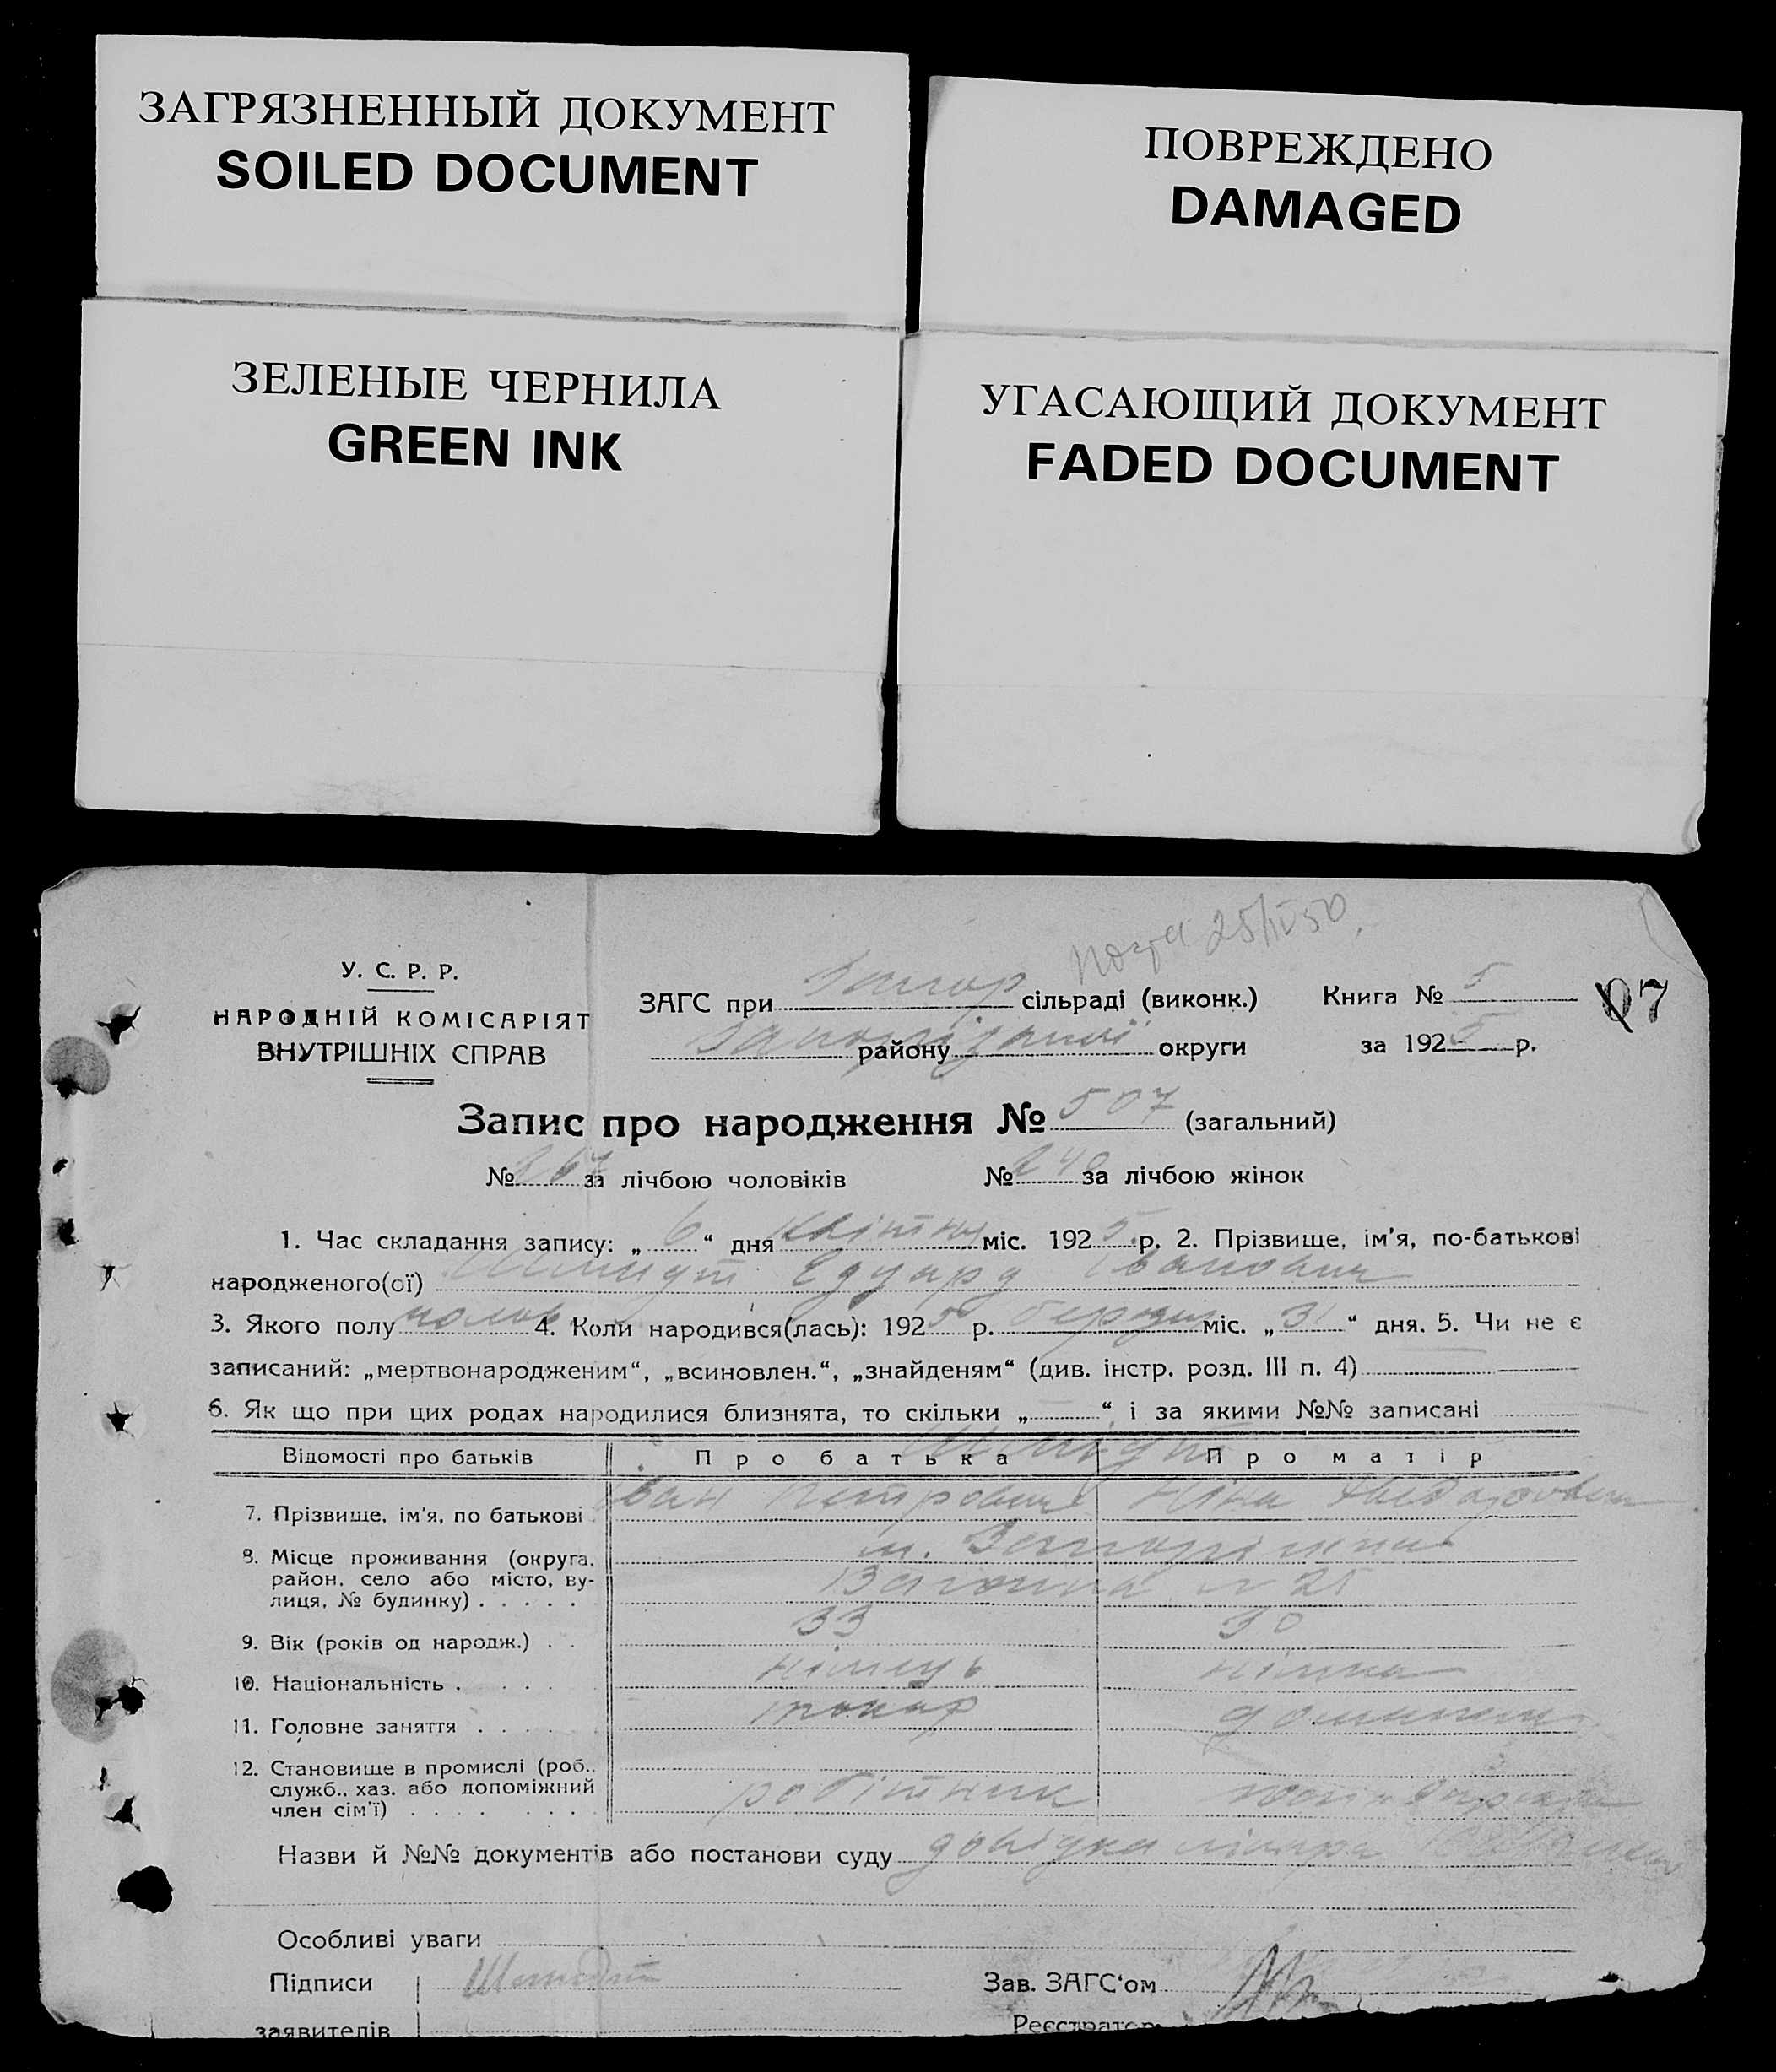 ЗАГРЯЗНЕННЫЙ ДОКУМЕНТ
SOILED DOCUMENT
ПОВРЕЖДЕНО
DAMAGED
ЗЕЛЕНЫЕ ЧЕРНИЛА
GREEN INK
УГАСАЮЩИЙ ДОКУМЕНТ
FADED DOCUMENT
25/IV 50
У. С. Р. Р.
НАРОДНІЙ КОМІСАРІЯТ
ВНУТРІШНІХ СПРАВ
ЗАГС при сільраді (виконк.) Книга № 5
району округи за 1925 р.
07
Запис про народження № 507 (загальний)
№ 267 за лічбою чоловіків № 240 за лічбою жінок
1. Час складання запису: „ 6 “ дня квітня міс. 1925 р. 2. Прізвище, ім'я, по-батькові
народженого(ої) Шмидт Едуард Іванович
3. Якого полу 4. Коли народився(лась): 1925 р. березня міс. „ 31 “ дня. 5. Чи не є
записаний: „мертвонародженим“, „всиновлен.“, „знайденям“ (див. інстр. розд. III п. 4)
6. Як що при цих родах народилися близнята, то скільки „ “ і за якими №№ записані
Шмидт
Відомості про батьків Про батька Про матір
7. Прізвище, ім'я, по батькові Іван Петрович Ніна
8. Місце проживання (округа, м. Запоріжжя
район, село або місто, ву- 25
лиця, № будинку)
9. Вік (років од народж.) 33 30
10. Національність німець німка
11. Головне заняття токар домашня
12. Становище в промислі (роб.,
служб., хаз. або допоміжний робітник
член сім'ї)
Назви й №№ документів або постанови суду довідка лікаря
Особливі уваги
Підписи Шмидт Зав. ЗАГС'ом
заявителів Реєстратор